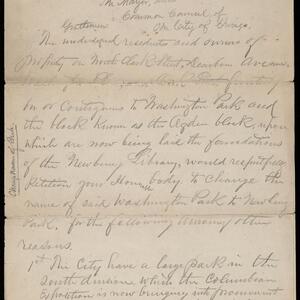 The Mayor, and
Common Council of
Gentlemen The City of Chicago.
The undersigned residents and owners of
property on North Clark Street, Dearborn Avenue
fronting
on or contiguous to Washington Park and
the block known as the Ogden block, upon
which are now being laid the foundations
of the Newberry Library, would respectfully
petition your Hon. body to change the
name of said Washington Park to Newberry
Park, for the following among other
reasons.
1st The City have a large park in the
South division which the Columbian
Exposition is now bringing into prominence
Change Name of Park